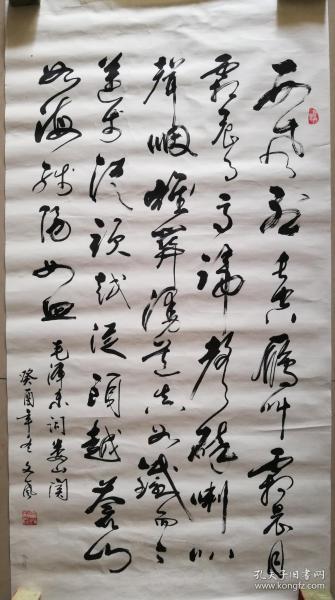 西风烈长空雁叫霜晨月
霜晨月马蹄声碎喇叭
声咽雄关漫道真如铁而今
迈步从头越从头越苍山
如海残阳如血
毛泽东词娄山关
癸酉年冬文风
孔夫子旧书网